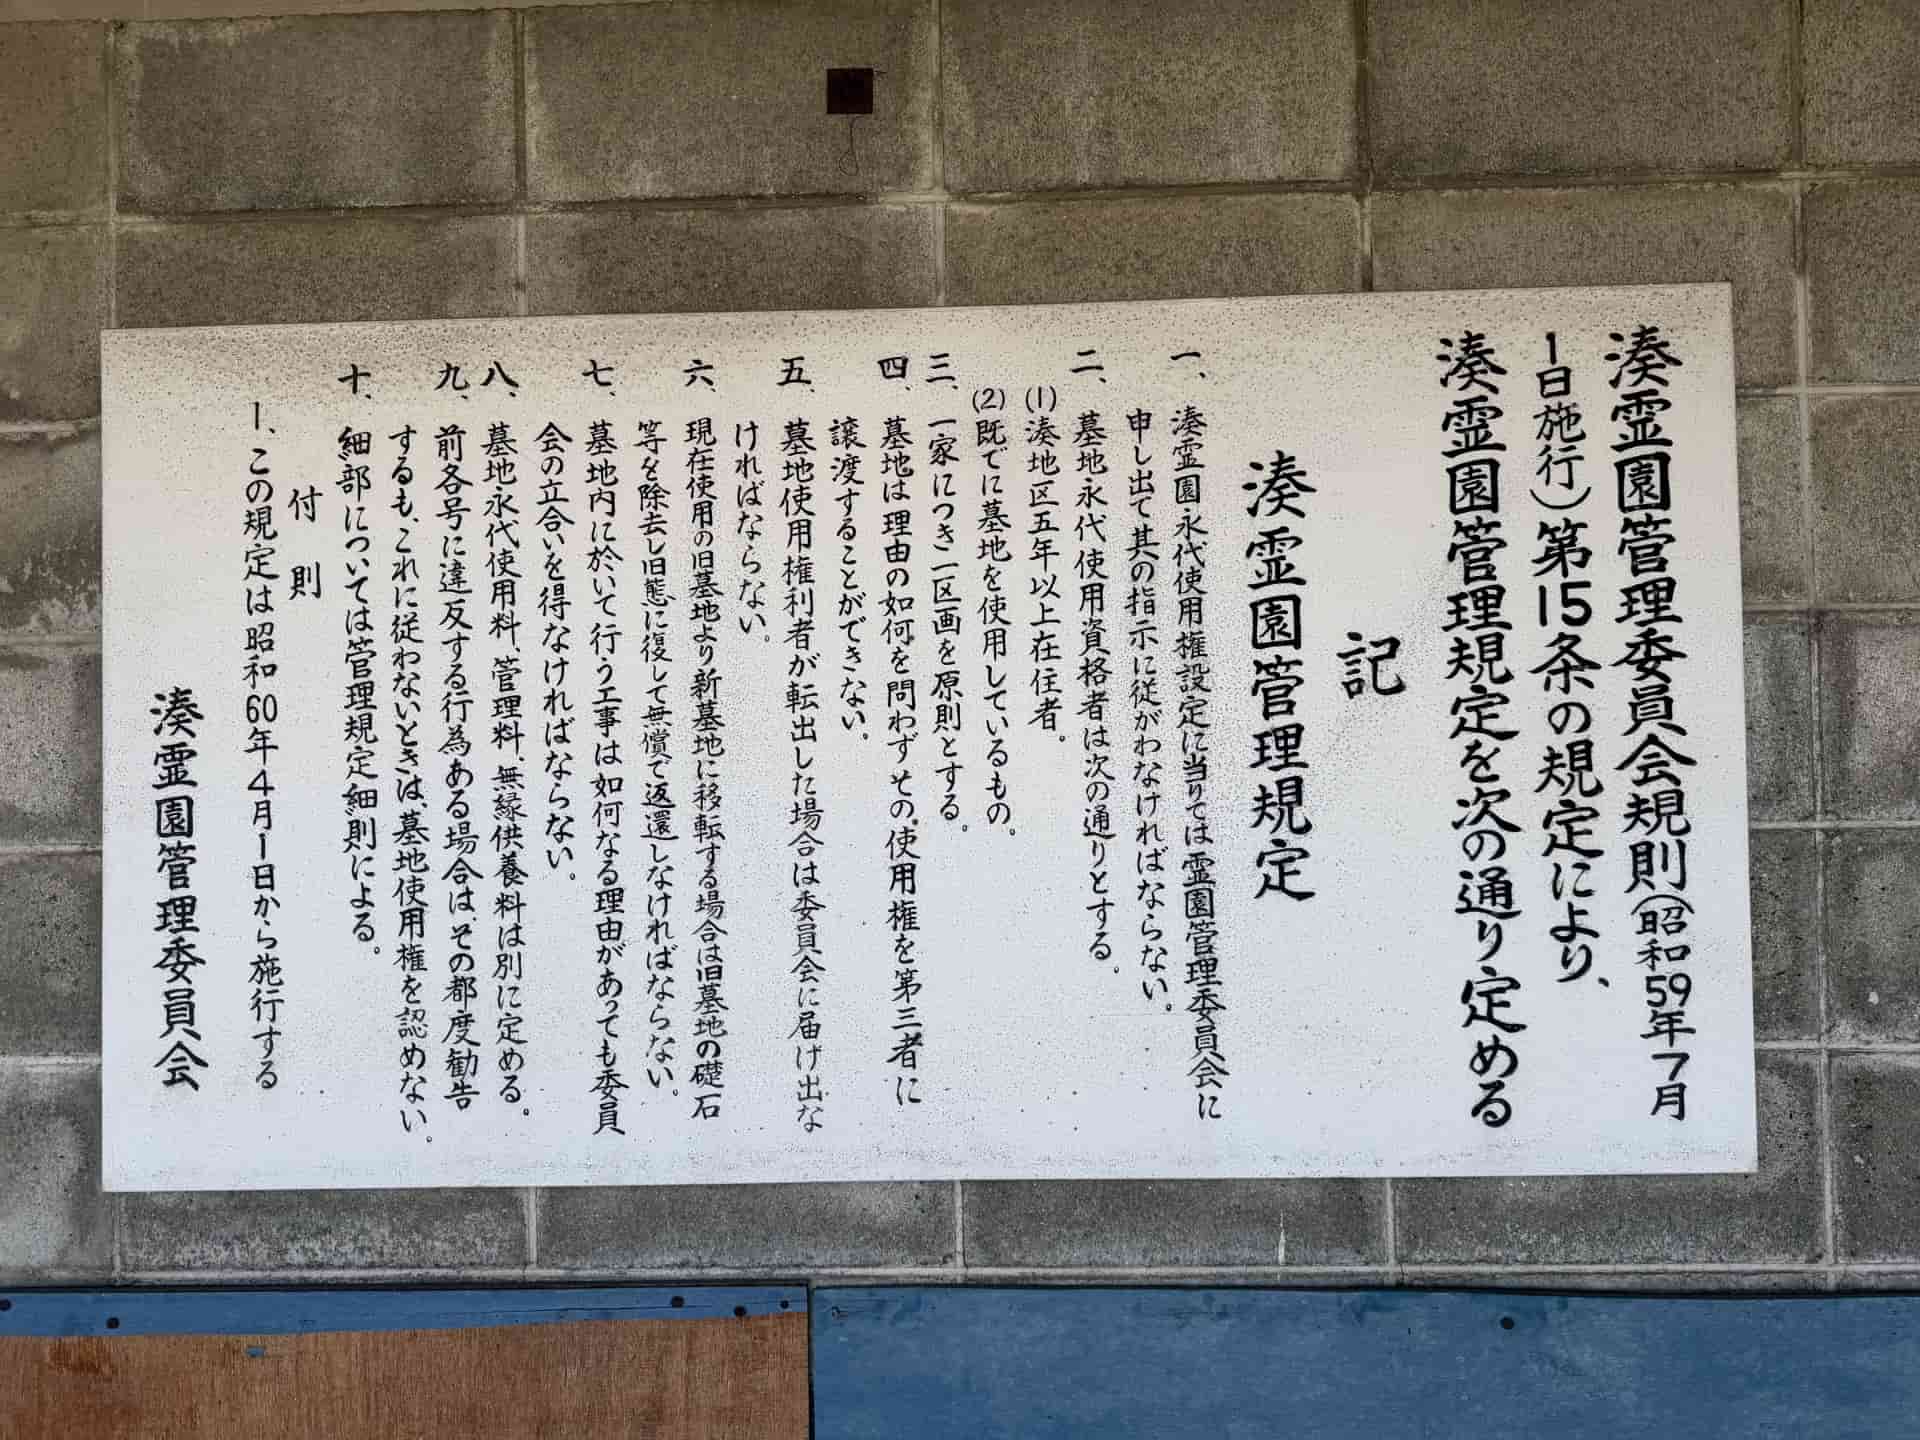 湊霊園管理委員会規則(昭和59年7月
1日施行)第15条の規定により、
湊霊園管理規定を次の通り定める
記
湊霊園管理規定
一、湊霊園永代使用権設定に当りては霊園管理委員会に
申し出て其の指示に従がわなければならない。
二、墓地永代使用資格者は次の通りとする。
(1)湊地区五年以上在住者。
(2)既でに墓地を使用しているもの。
三、一家につき一区画を原則とする。
四、墓地は理由の如何を問わずその使用権を第三者に
譲渡することができない。
五、墓地使用権利者が転出した場合は委員会に届け出な
ければならない。
六、現在使用の旧墓地より新墓地に移転する場合は旧墓地の礎石
等を除去し旧態に復して無償で返還しなければならない。
七、墓地内に於いて行う工事は如何なる理由があっても委員
会の立合いを得なければならない。
八、墓地永代使用料、管理料、無縁供養料は別に定める。
九、前各号に違反する行為ある場合は、その都度勧告
するも、これに従わないときは、墓地使用権を認めない。
十、細部については管理規定細則による。
付則
1、この規定は昭和60年4月1日から施行する
湊霊園管理委員会